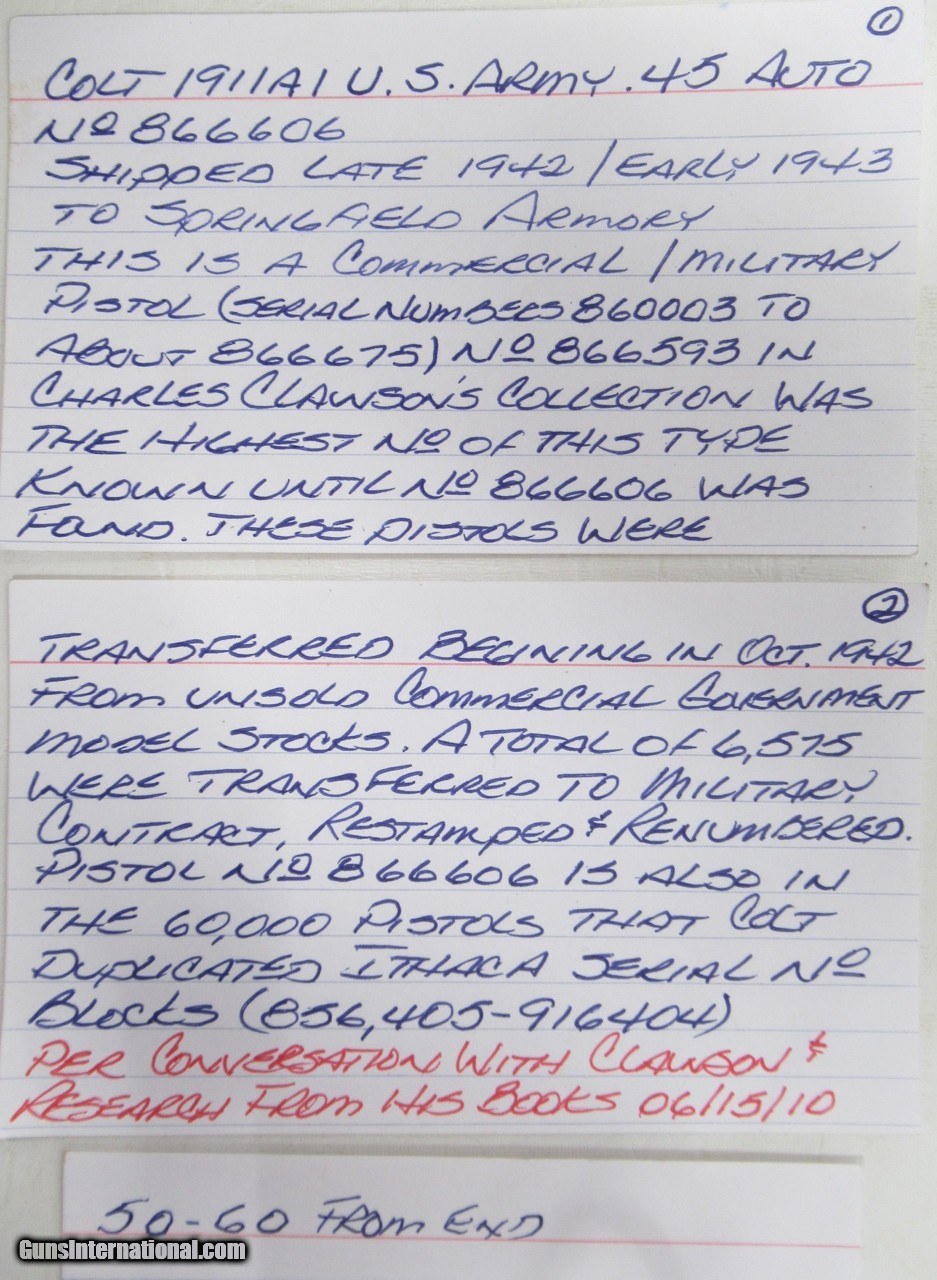 1
COLT 1911A1 U.S. ARMY .45 AUTO
Nº 866606
SHIPPED LATE 1942 / EARLY 1943
TO SPRINGFIELD ARMORY
THIS IS A COMMERCIAL / MILITARY
PISTOL (SERIAL NUMBERS 860003 TO
ABOUT 866675) Nº 866593 IN
CHARLES CLAWSON'S COLLECTION WAS
THE HIGHEST Nº OF THIS TYPE
KNOWN UNTIL Nº 866606 WAS
FOUND. THESE PISTOLS WERE
2
TRANSFERRED BEGINING IN OCT. 1942
FROM UNSOLD COMMERCIAL GOVERNMENT
MODEL STOCKS. A TOTAL OF 6,575
WERE TRANSFERRED TO MILITARY
CONTRACT, RESTAMPED & RENUMBERED.
PISTOL Nº 866606 IS ALSO IN
THE 60,000 PISTOLS THAT COLT
DUPLICATED ITHACA SERIAL Nº
BLOCKS (856,405-916404)
PER CONVERSATION WITH CLAWSON &
RESEARCH FROM HIS BOOKS 06/15/10
50-60 FROM END
GunsInternational.com